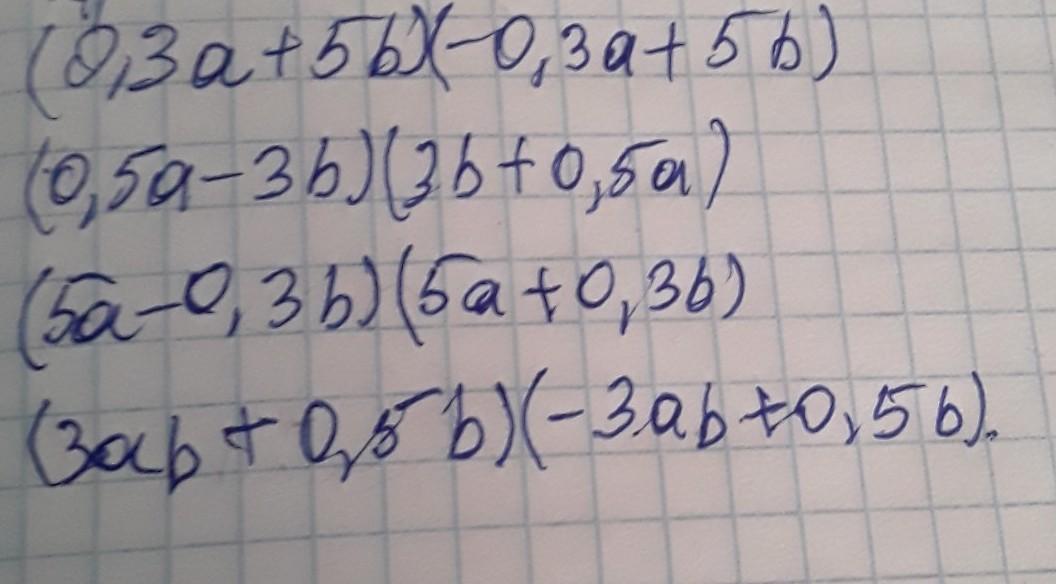 (0,3a+5b)(-0,3a+5b)
(0,5a-3b)(3b+0,5a)
(5a-0,3b)(5a+0,3b)
(3ab+0,5b)(-3ab+0,5b).